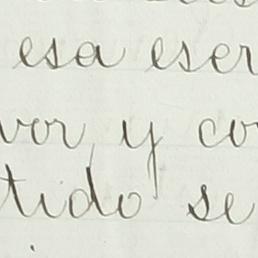 esa escr
vor, y co
tido se